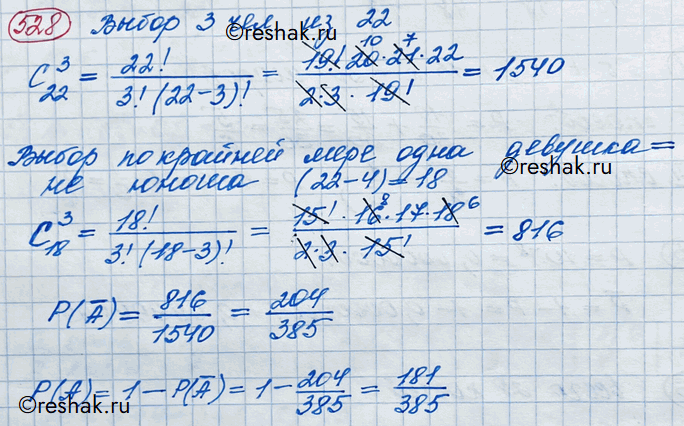 528 Выбор 3 чел из 22
©reshak.ru
C₂₂³ = 22! / 3!(22-3)! = 19!·20·21·22 / 2·3·19! = 1540
10 7
Выбор по крайней мере одна девушка =
©reshak.ru
не юноша (22-4)=18
C₁₈³ = 18! / 3!(18-3)! = 15!·16·17·18 / 2·3·15! = 816
8 6
©reshak.ru
P(A̅) = 816/1540 = 204/385
P(A) = 1 - P(A̅) = 1 - 204/385 = 181/385
©reshak.ru
©reshak.ru